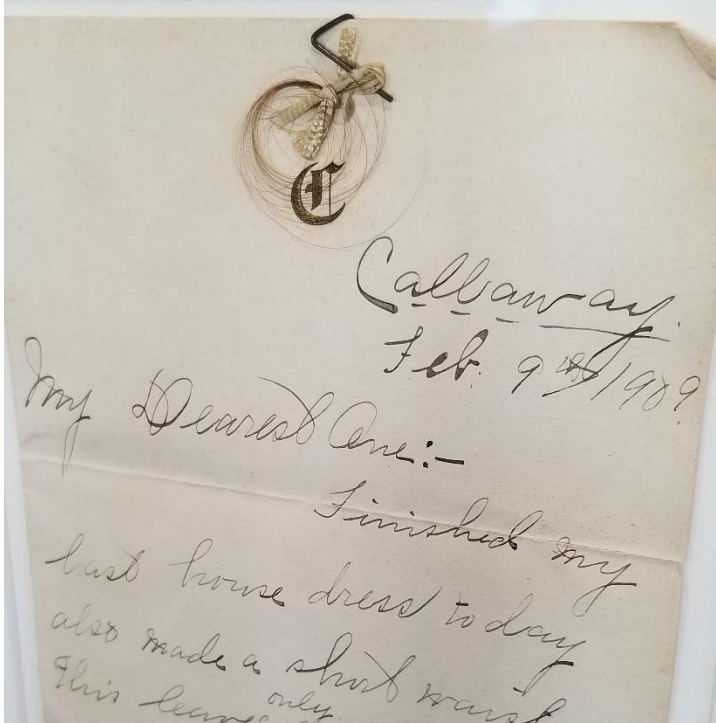 C
Callaway.
Feb. 9th/1909
My Dearest One:-
Finished my
last house dress to day
also made a short waist
only
This leaves